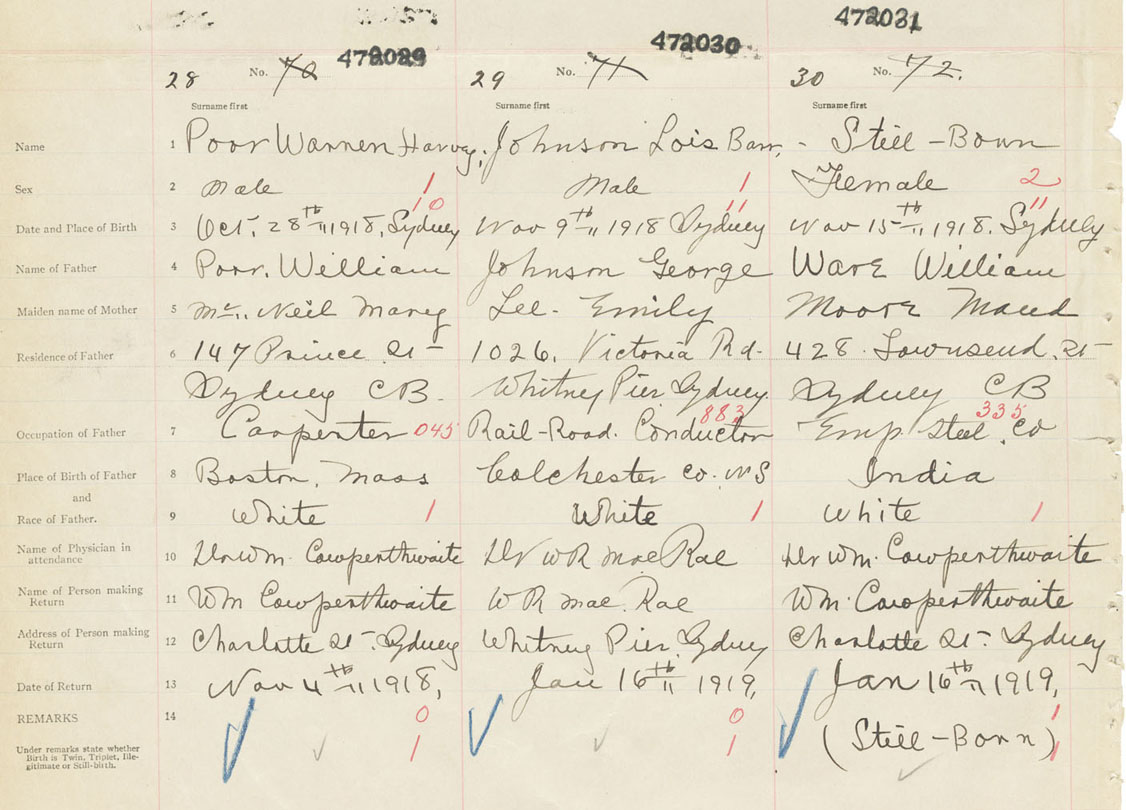 472029 472030 472031
28 No. 70 29 No. 71 30 No. 72.
Surname first Surname first Surname first
Name 1 Poor Warren Harvey, Johnson Lois Barr, - Still-Born
Sex 2 Male 1 Male 1 Female 2
10 11 11
Date and Place of Birth 3 Oct, 28th 1918, Sydney Nov 9th 1918 Sydney Nov 15th 1918. Sydney
Name of Father 4 Poor. William Johnson George Ware William
Maiden name of Mother 5 Mc Neil Mary Lee. Emily Moore Maud
Residence of Father 6 147 Prince St 1026, Victoria Rd. 428 Townsend. St
Sydney CB. Whitney Pier, Sydney. Sydney CB
883 335
Occupation of Father 7 Carpenter 045 Rail-Road. Conductor Emp Steel, Co
Place of Birth of Father 8 Boston, Mass Colchester Co. NS India
and
Race of Father. 9 White 1 White 1 White 1
Name of Physician in
attendance 10 Dr Wm. Cowperthwaite Dr W R MacRae Dr Wm. Cowperthwaite
Name of Person making
Return 11 Wm Cowperthwaite W R Mac. Rae Wm. Cowperthwaite
Address of Person making
Return 12 Charlotte St. Sydney Whitney Pier, Sydney Charlotte St. Sydney
Date of Return 13 Nov 4th 1918, Jan 16th 1919, Jan 16th 1919,
REMARKS 14 0 0 1
Under remarks state whether
Birth is Twin, Triplet, Ille-
gitimate or Still-birth. 1 1 (Still-Born) 1